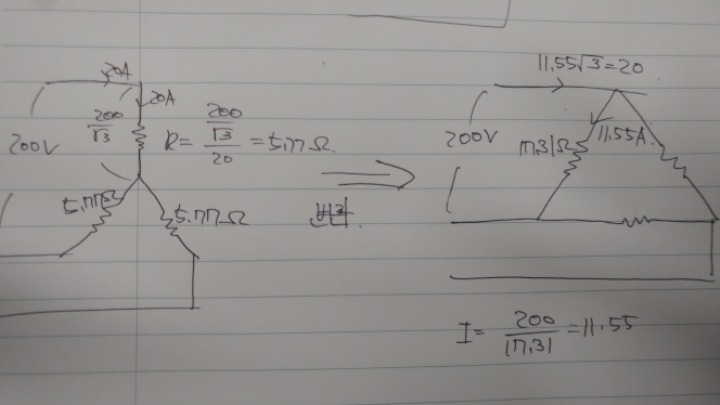 20A
20A
200V
200/√3
R = (200/√3)/20 = 5.77Ω
5.77Ω
5.77Ω
변환
11.55√3=20
200V
17.31Ω
11.55A.
I = 200/17.31 = 11.55